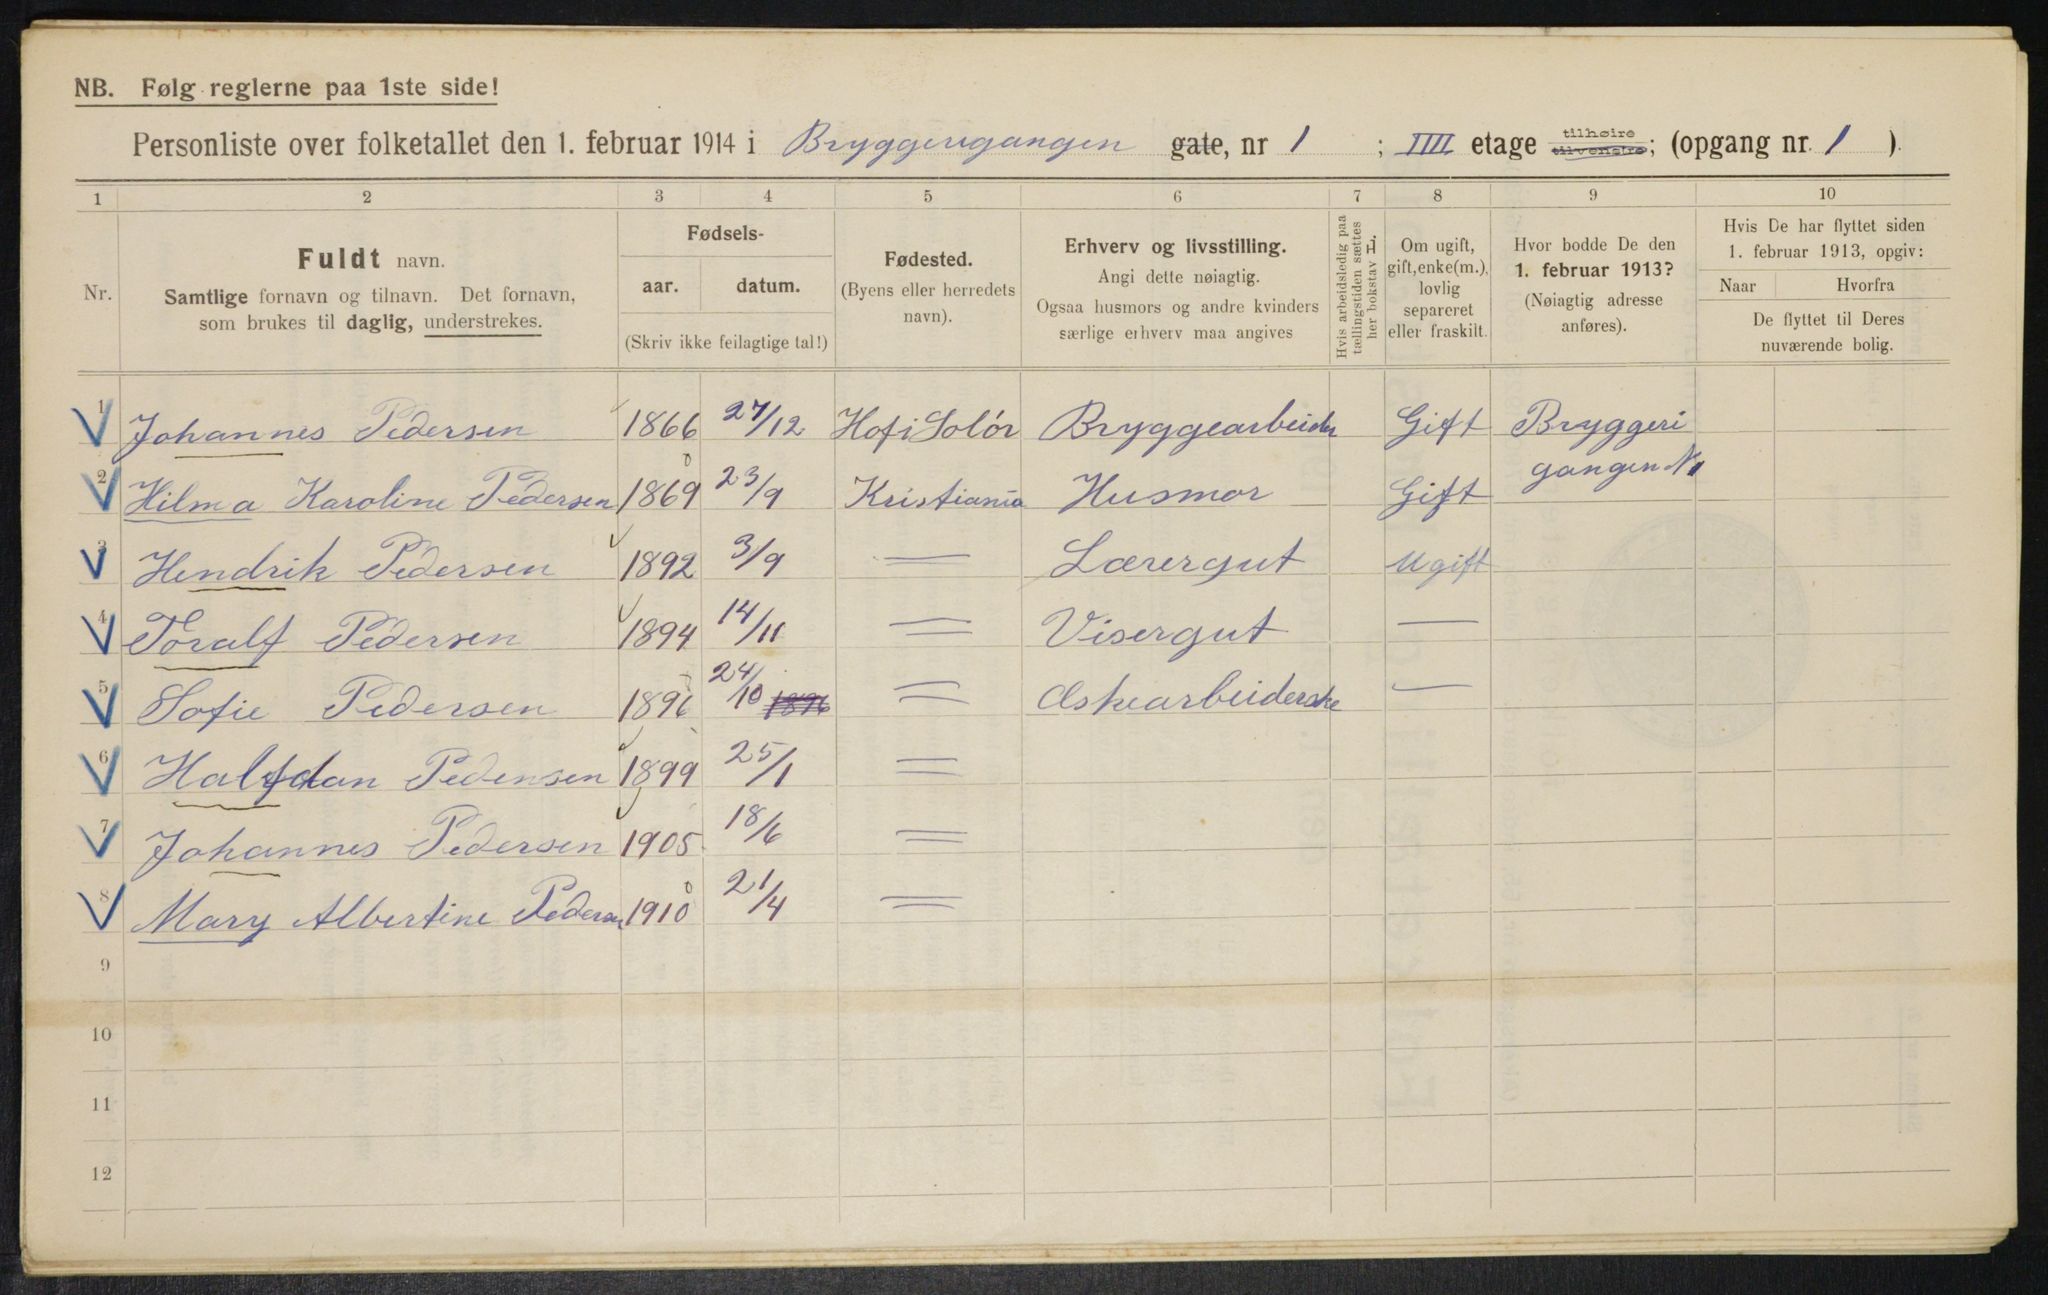 NB. Følg reglerne paa 1ste side!
Personliste over folketallet den 1. februar 1914 i Bryggerigangen gate, nr 1 ; IIII etage tilhøire tilvenstre; (opgang nr. 1 ).
1 2 3 4 5 6 7 8 9 10
Nr.
Fuldt navn.
Samtlige fornavn og tilnavn. Det fornavn,
som brukes til daglig, understrekes.
Fødsels-
aar. datum.
(Skriv ikke feilagtige tal!)
Fødested.
(Byens eller herredets
navn).
Erhverv og livsstilling.
Angi dette nøiagtig.
Ogsaa husmors og andre kvinders
særlige erhverv maa angives
Hvis arbeidsledig paa
tællingstiden sættes
her bokstav L.
Om ugift,
gift, enke(m.),
lovlig
separeret
eller fraskilt.
Hvor bodde De den
1. februar 1913?
(Nøiagtig adresse
anføres).
Hvis De har flyttet siden
1. februar 1913, opgiv:
Naar Hvorfra
De flyttet til Deres
nuværende bolig.
1 Johannes Pedersen 1866 27/12 Hof i Solør Bryggearbeider Gift Bryggeri
gangen N 1
2 Hilma Karoline Pedersen 1869 23/9 Kristiania Husmor Gift
3 Hendrik Pedersen 1892 3/9 = Lærergut Ugift
4 Toralf Pedersen 1894 14/11 = Visergut —
5 Sofie Pedersen 1896 24/10 1896 = Æskearbeiderske —
6 Halfdan Pedersen 1899 25/1 =
7 Johannes Pedersen 1905 18/6 =
8 Mary Albertine Pedersen 1910 21/4 =
9
10
11
12